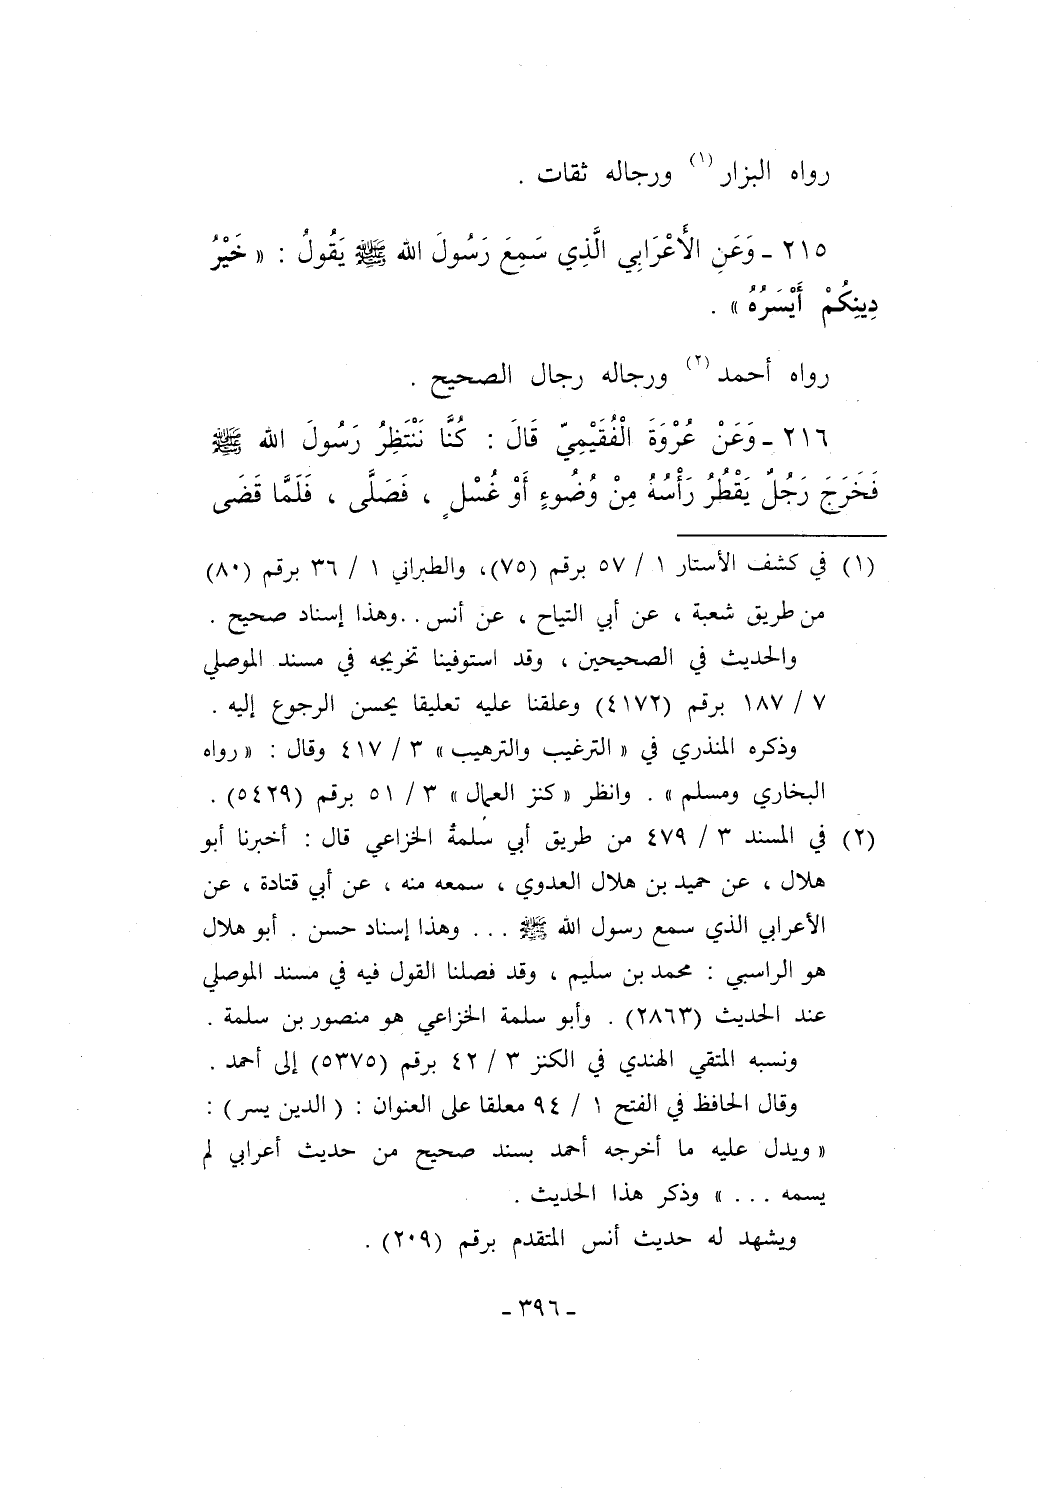 رواه البزار (١) ورجاله ثقات .
٢١٥ - وَعَنِ الأَعْرَابِي الَّذِي سَمِعَ رَسُولَ الله ﷺ يَقُولُ : « خَيْرُ
دِينِكُمْ أَيْسَرُهُ » .
رواه أحمد (٢) ورجاله رجال الصحيح .
٢١٦ - وَعَنْ عُرْوَةَ الْفُقَيْمِيّ قَالَ : كُنَّا نَنْتَظِرُ رَسُولَ الله ﷺ
فَخَرَجَ رَجُلٌ يَقْطُرُ رَأْسُهُ مِنْ وُضُوءٍ أَوْ غُسْلٍ ، فَصَلَّى ، فَلَمَّا قَضَى
(١) في كشف الأستار ١ / ٥٧ برقم (٧٥)، والطبراني ١ / ٣٦ برقم (٨٠)
من طريق شعبة ، عن أبي التياح ، عن أنس . . وهذا إسناد صحيح .
والحديث في الصحيحين ، وقد استوفينا تخريجه في مسند الموصلي
٧ / ١٨٧ برقم (٤١٧٢) وعلقنا عليه تعليقا يحسن الرجوع إليه .
وذكره المنذري في « الترغيب والترهيب » ٣ / ٤١٧ وقال : « رواه
البخاري ومسلم » . وانظر « كنز العمال » ٣ / ٥١ برقم (٥٤٢٩) .
(٢) في المسند ٣ / ٤٧٩ من طريق أبي سلمة الخزاعي قال : أخبرنا أبو
هلال ، عن حميد بن هلال العدوي ، سمعه منه ، عن أبي قتادة ، عن
الأعرابي الذي سمع رسول الله ﷺ . . . وهذا إسناد حسن . أبو هلال
هو الراسبي : محمد بن سليم ، وقد فصلنا القول فيه في مسند الموصلي
عند الحديث (٢٨٦٣) . وأبو سلمة الخزاعي هو منصور بن سلمة .
ونسبه المتقي الهندي في الكنز ٣ / ٤٢ برقم (٥٣٧٥) إلى أحمد .
وقال الحافظ في الفتح ١ / ٩٤ معلقا على العنوان : ( الدين يسر ) :
« ويدل عليه ما أخرجه أحمد بسند صحيح من حديث أعرابي لم
يسمه . . . » وذكر هذا الحديث .
ويشهد له حديث أنس المتقدم برقم (٢٠٩) .
- ٣٩٦ -